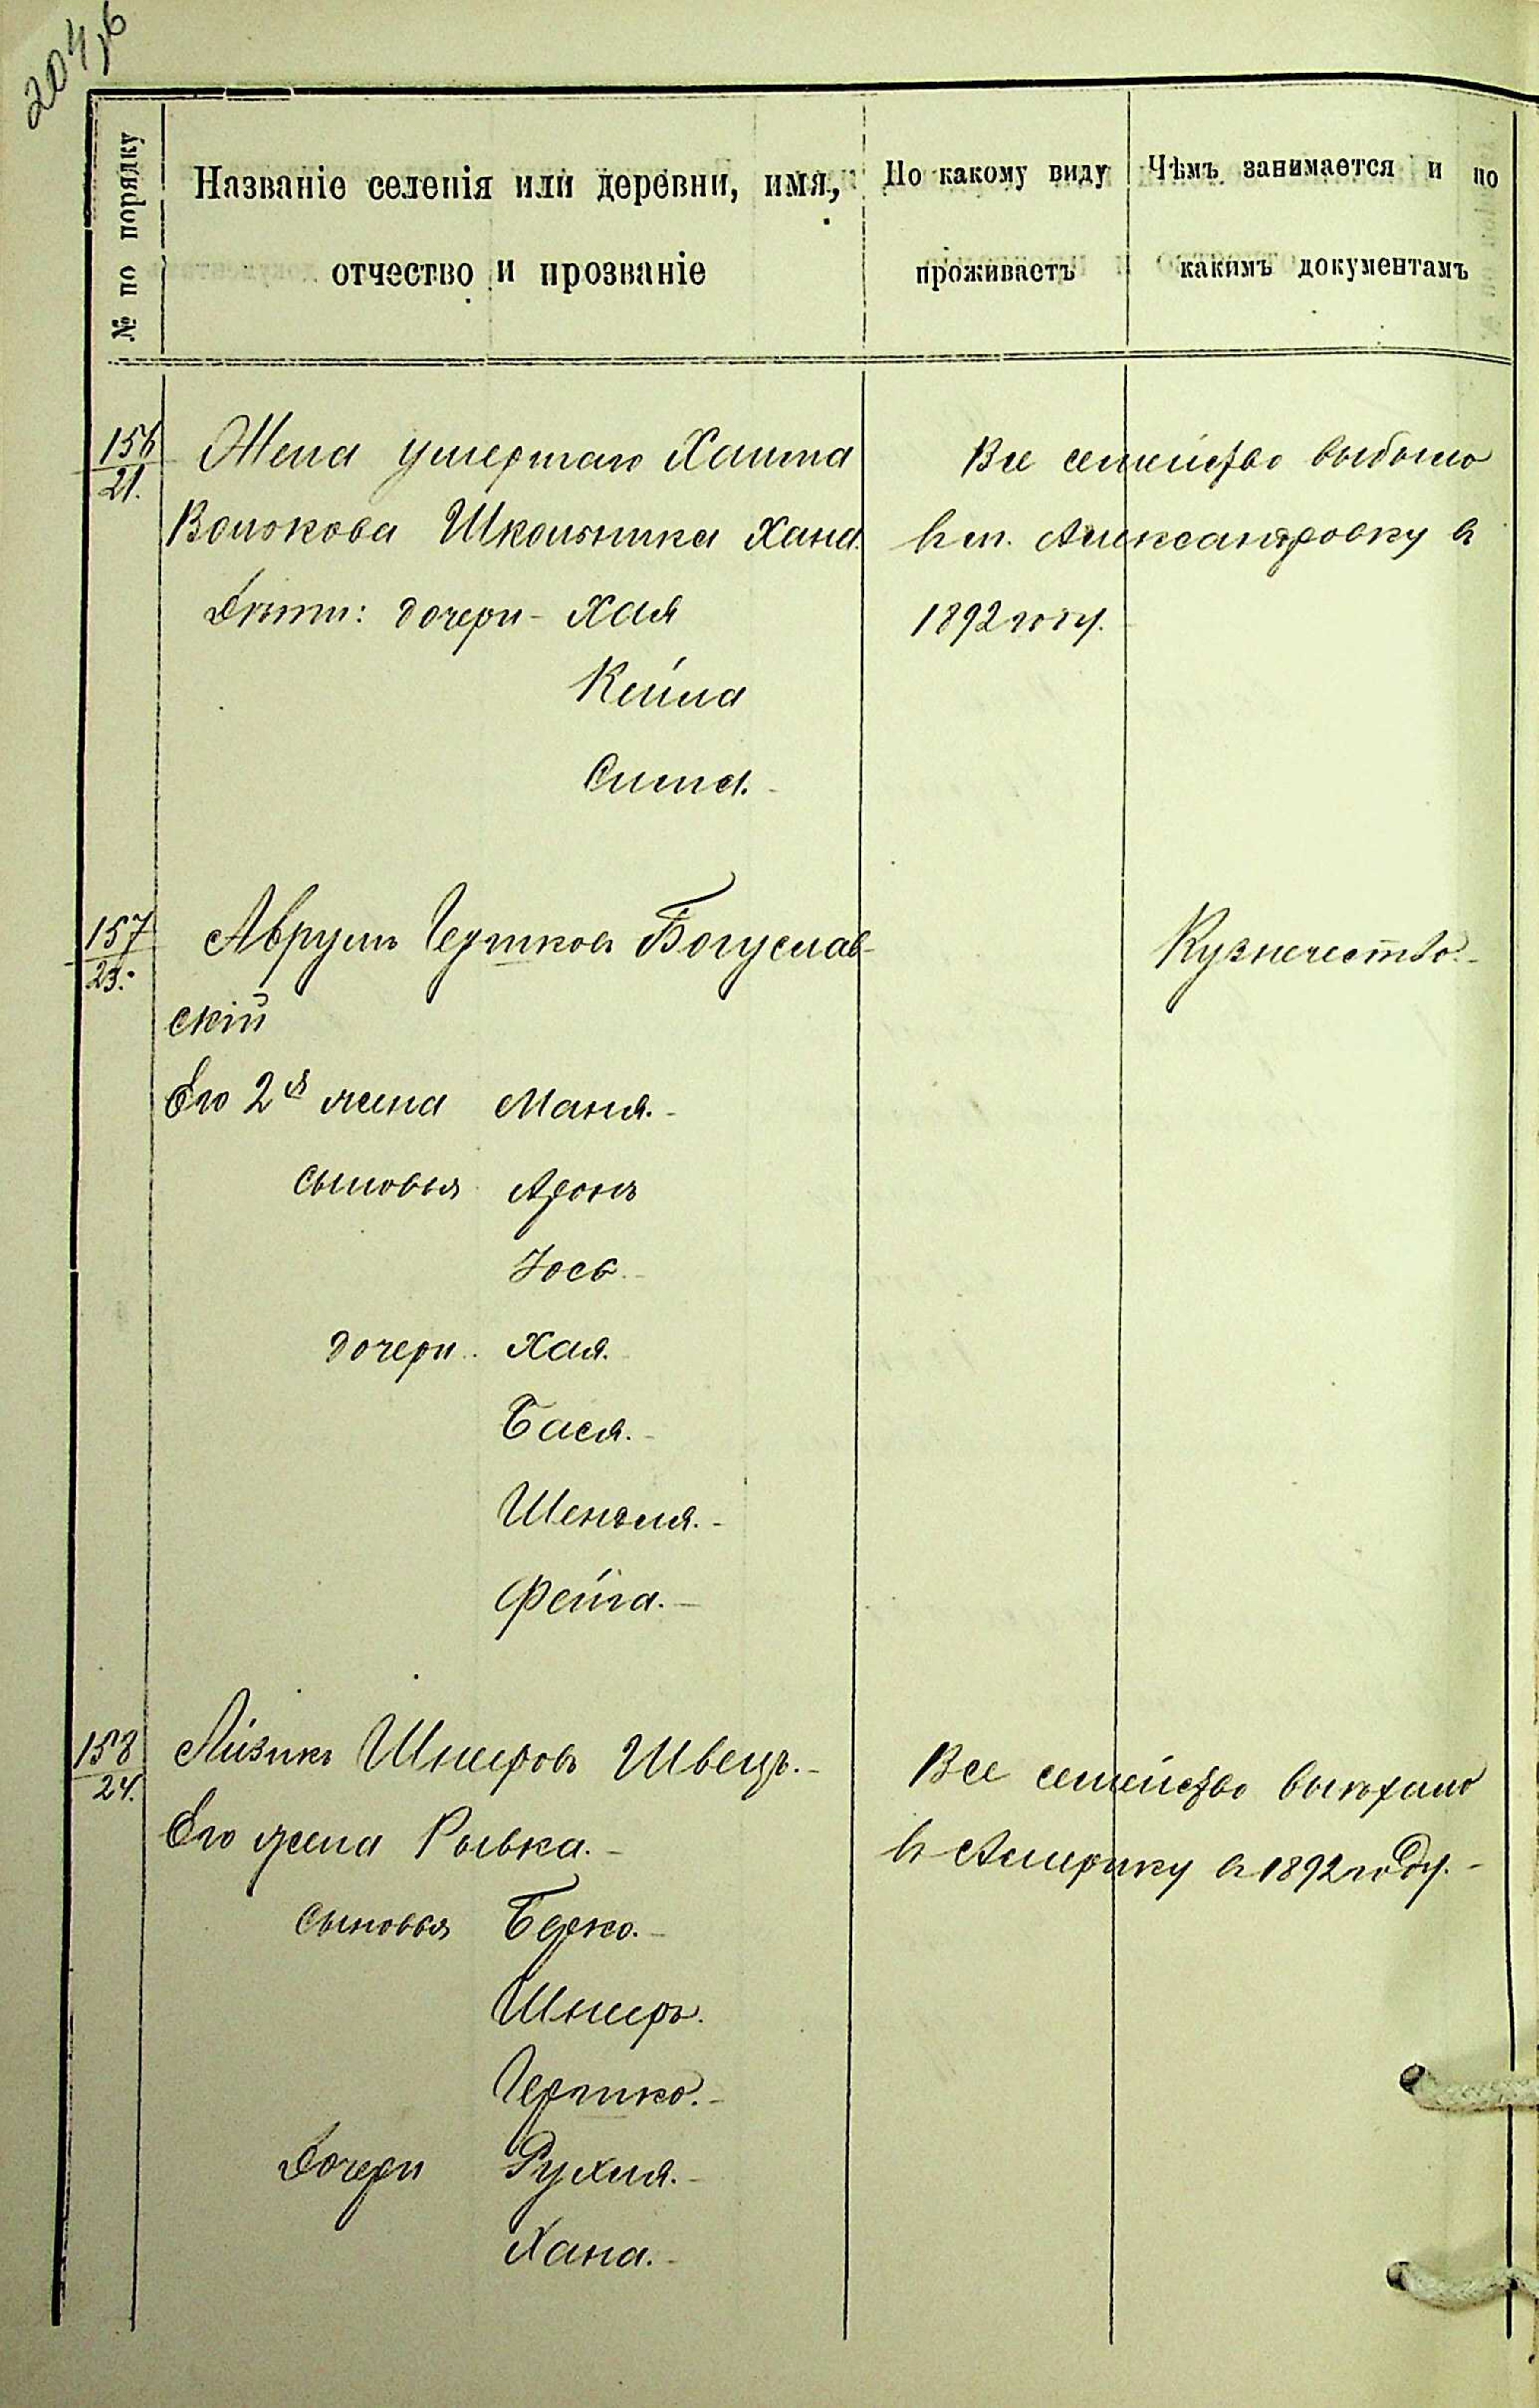 204об
№ по порядку
Названіе селенія или деревни, имя,
отчество и прозваніе
По какому виду
проживаетъ
Чѣмъ занимается и по
какимъ документамъ
156
21.
Жена умершаго Хаима
Волокова Школьника Хана.
Дѣти: дочери - Хая
Кейла
Сима.
Все семейство выбыло
въ м. Александровку въ
1892 году.
157
23.
Аврумъ Гершковъ Богуслав-
скій
Его 2я жена Маня.
сыновья Аронъ
Іось.
дочери. Хая.
Бася.
Шендля.
Фейга.
Кузнечество.
158
24.
Айзикъ Шнеровъ Швецъ.
Его жена Рывка.
сыновья Берко.
Шнеръ.
Гершко.
Дочери Рухля.
Хана.
Все семейство выѣхало
въ Америку въ 1892 году.